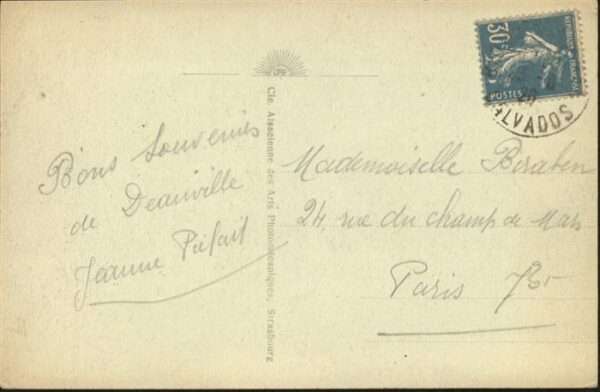 30c
REPUBLIQUE FRANÇAISE
POSTES
CALVADOS
Bons Souvenirs
de Deauville
Jeanne
Cie. Alsacienne des Arts Photomécaniques, Strasbourg
Mademoiselle Beraben
24, rue du Champ de Mars
Paris 7e